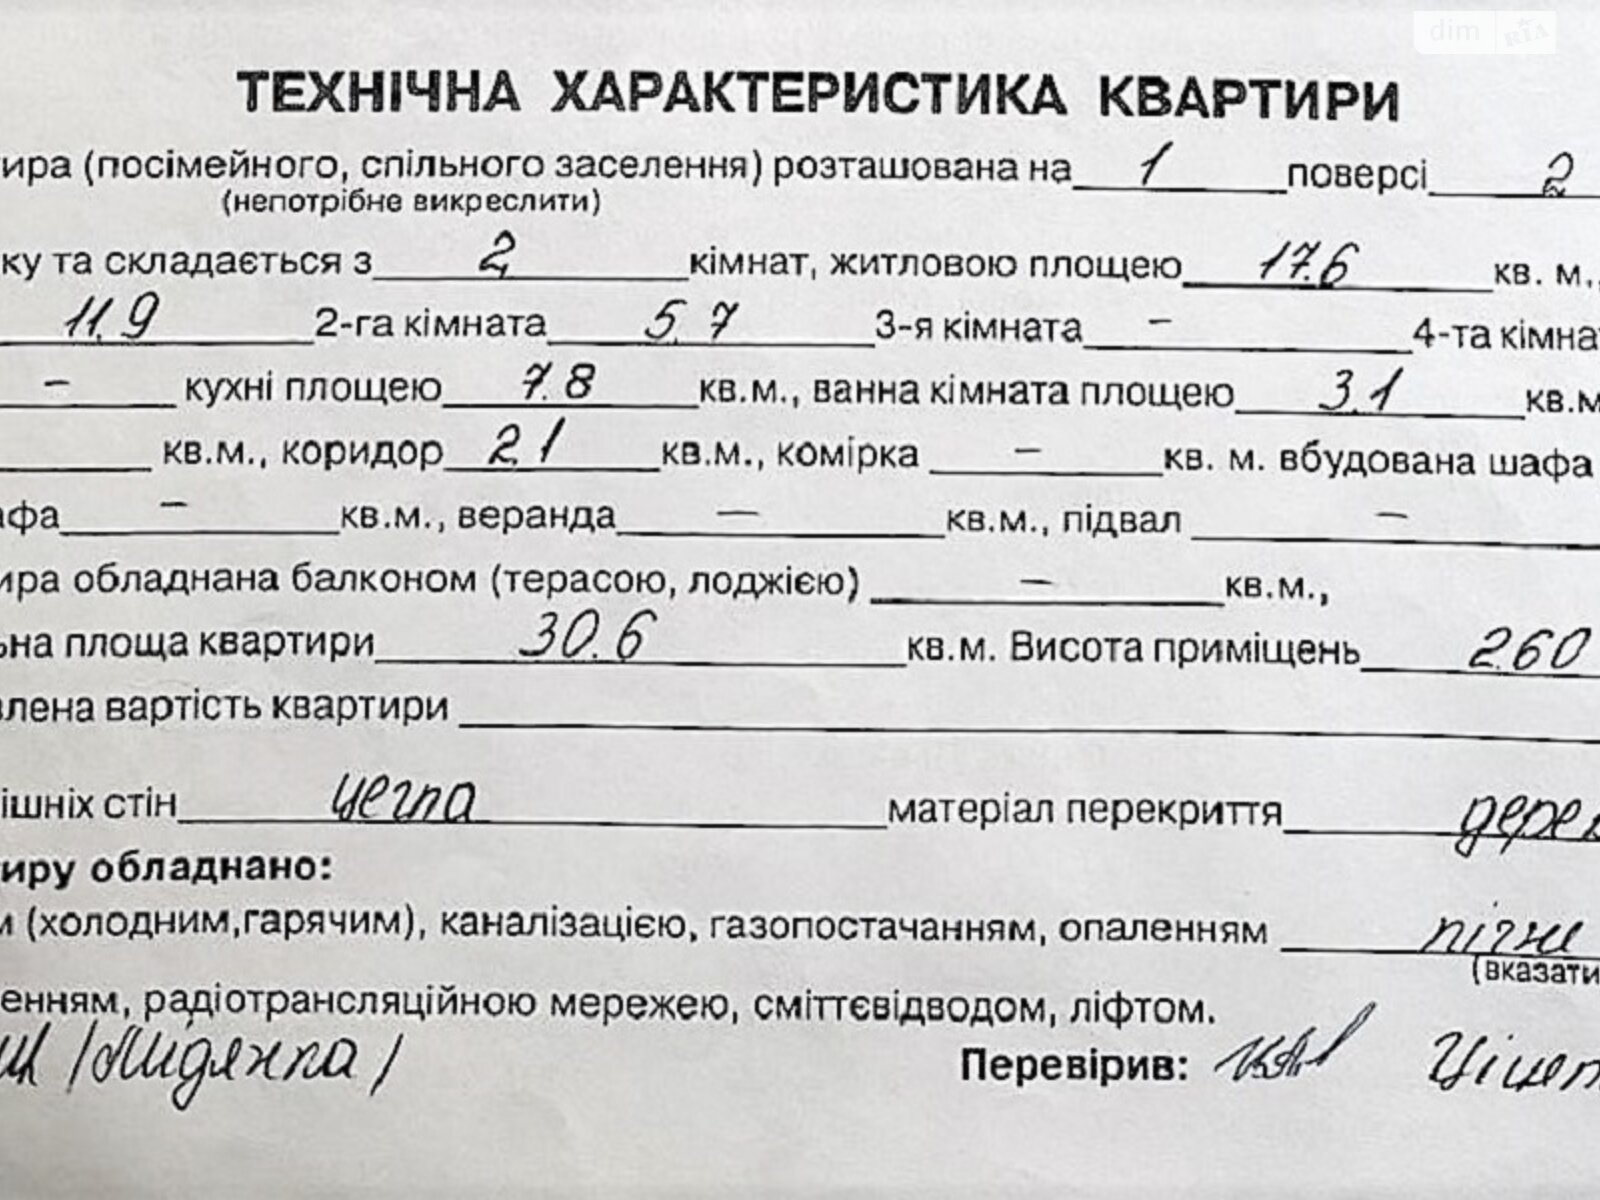 dim RIA
ТЕХНІЧНА ХАРАКТЕРИСТИКА КВАРТИРИ
ира (посімейного, спільного заселення) розташована на 1 поверсі 2
(непотрібне викреслити)
ку та складається з 2 кімнат, житловою площею 17.6 кв. м.,
11.9 2-га кімната 5.7 3-я кімната – 4-та кімна
– кухні площею 7.8 кв.м., ванна кімната площею 3.1 кв.м
кв.м., коридор 2.1 кв.м., комірка – кв. м. вбудована шафа
афа – кв.м., веранда – кв.м., підвал –
ира обладнана балконом (терасою, лоджією) – кв.м.,
ьна площа квартири 30.6 кв.м. Висота приміщень 2.60
влена вартість квартири
ішніх стін цегла матеріал перекриття дерев
тиру обладнано:
м (холодним,гарячим), каналізацією, газопостачанням, опаленням пічне
(вказати
енням, радіотрансляційною мережею, сміттєвідводом, ліфтом.
Перевірив: